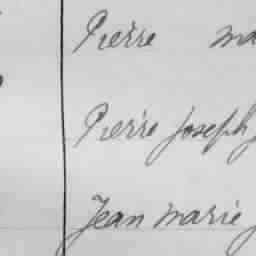 Pierre ma
Pierre joseph
Jean marie